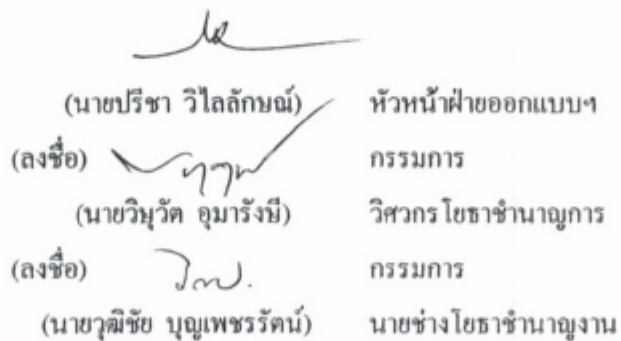 (นายปรีชา วิไลลักษณ์) หัวหน้าฝ่ายออกแบบฯ
(ลงชื่อ) กรรมการ
(นายวิษุวัต อุมารังษี) วิศวกรโยธาชำนาญการ
(ลงชื่อ) กรรมการ
(นายวุฒิชัย บุญเพชรรัตน์) นายช่างโยธาชำนาญงาน